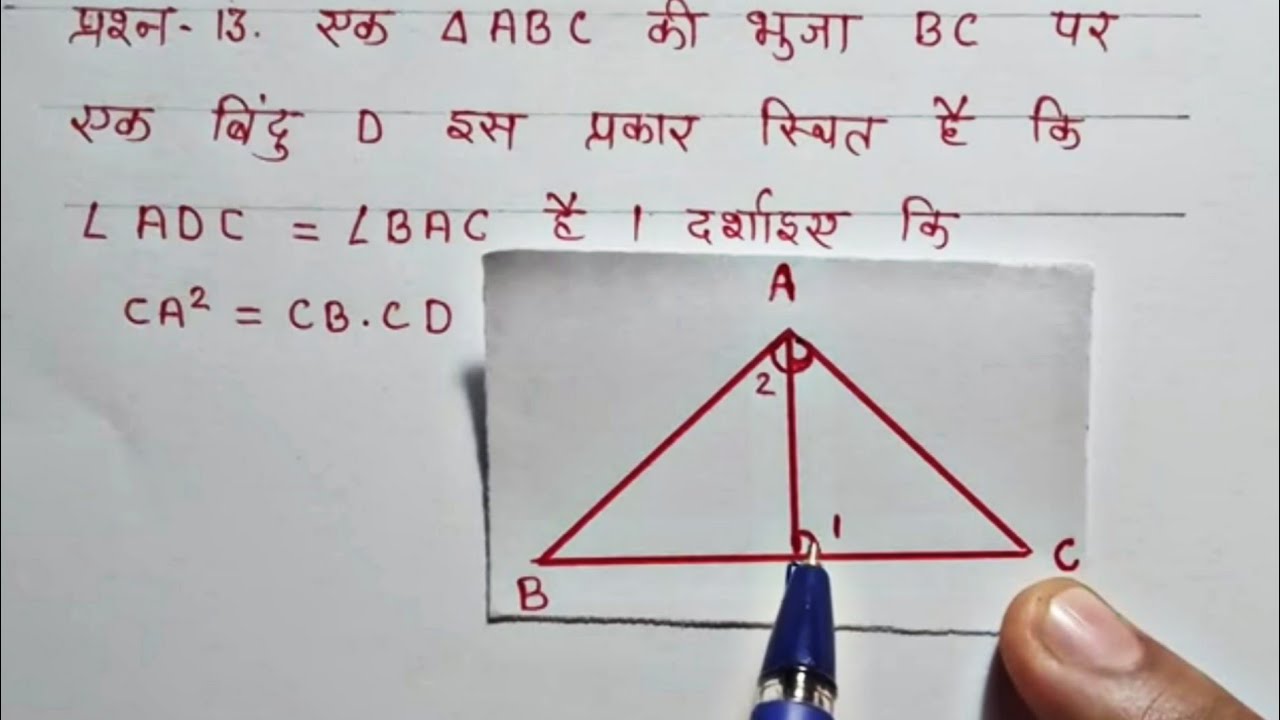 प्रश्न-13. एक ΔABC की भुजा BC पर
एक बिंदु D इस प्रकार स्थित है कि
∠ADC = ∠BAC है । दर्शाइए कि
CA² = CB.CD
A
2
1
B
C